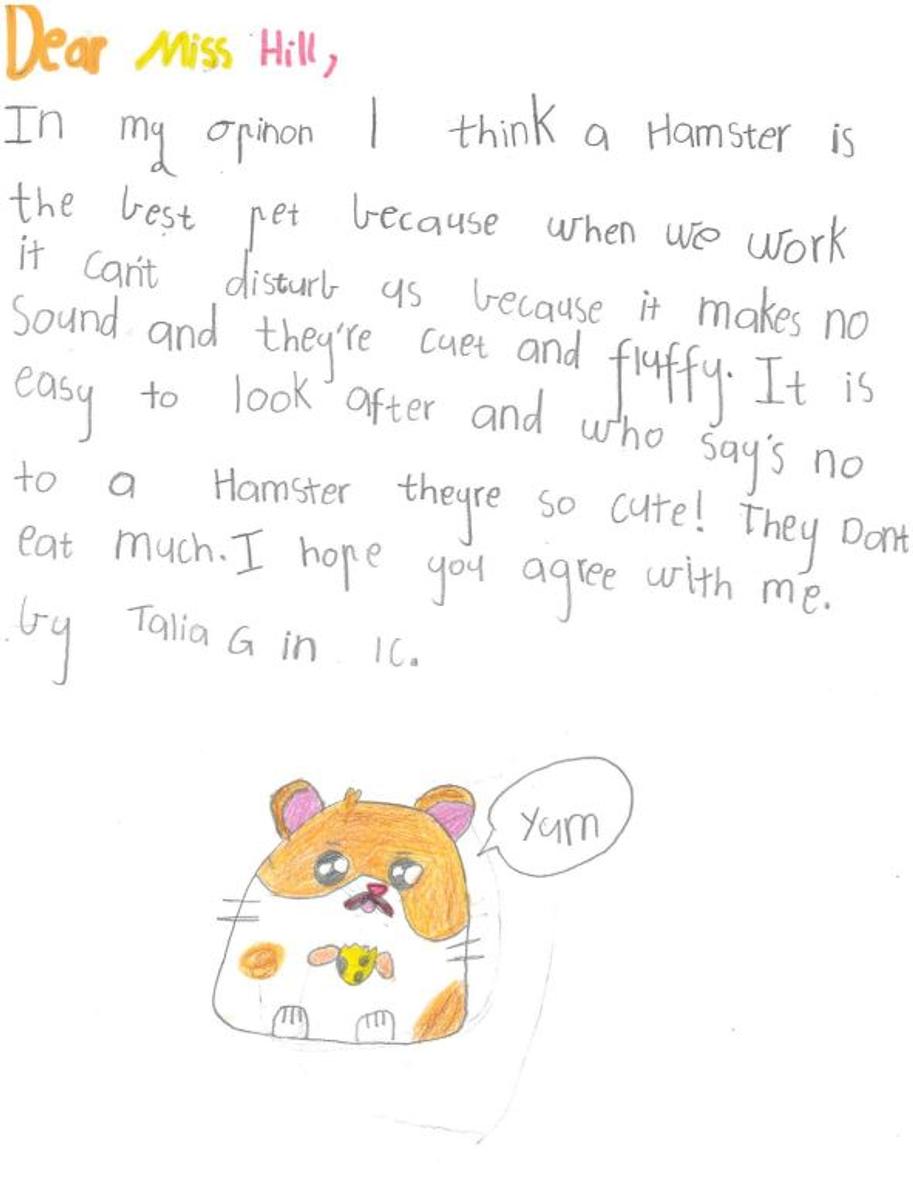 Dear Miss Hill,
In my opinon I think a Hamster is
the best pet because when we work
it can't disturb us because it makes no
Sound and they're cuet and fluffy. It is
easy to look after and who say's no
to a Hamster theyre so cute! They Dont
eat much. I hope you agree with me.
by Talia G in 1C.
Yum